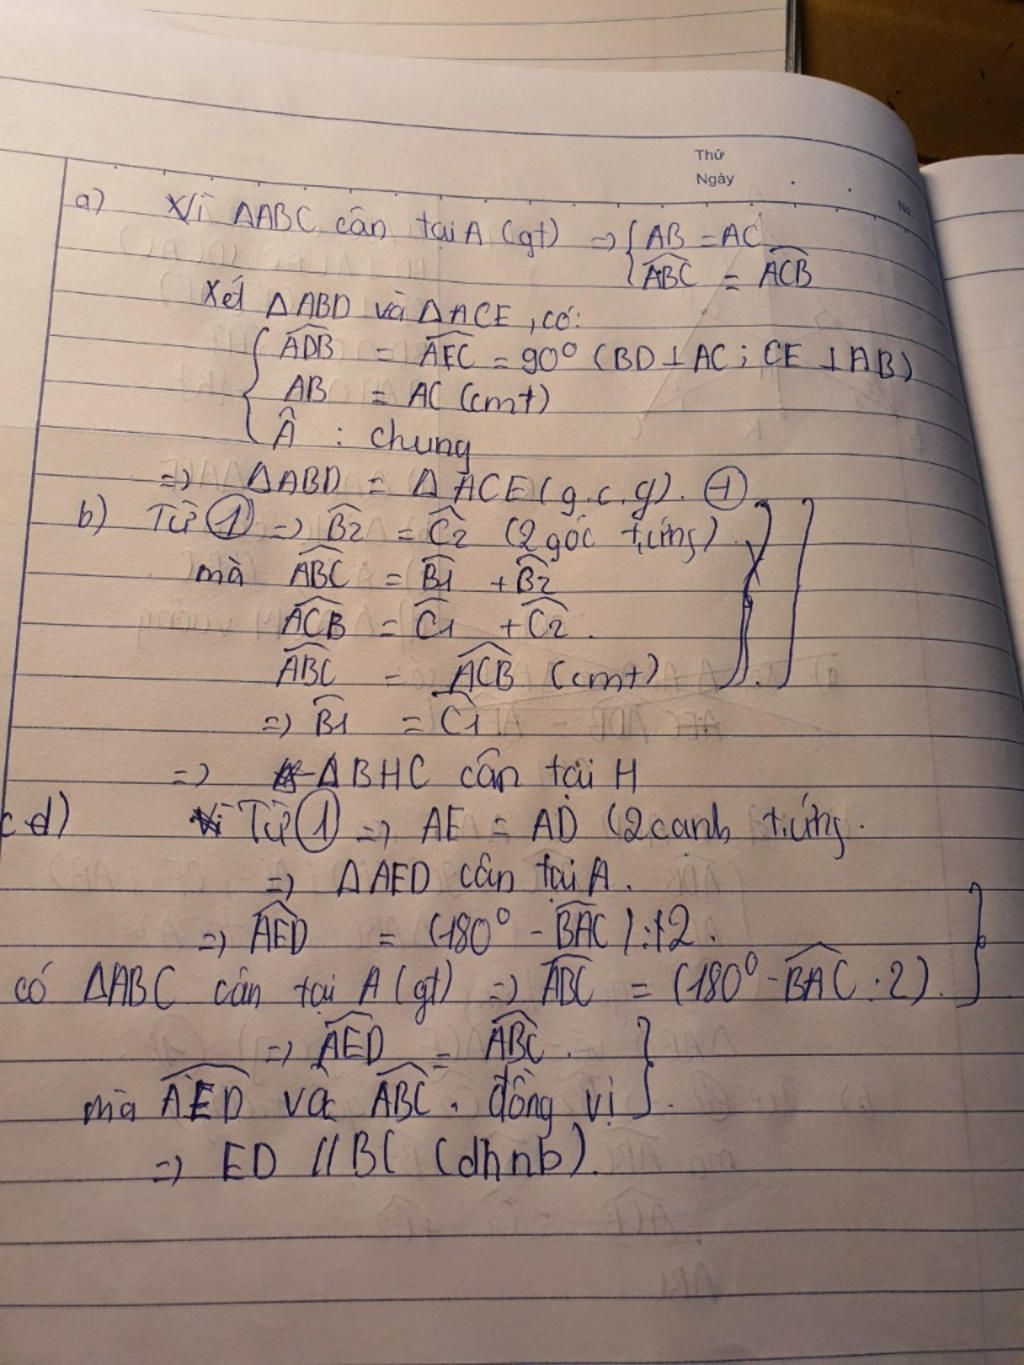 Thứ
Ngày
No.
a) Vì ΔABC cân tại A (gt) => { AB = AC
{ \widehat{ABC} = \widehat{ACB}
Xét ΔABD và ΔACE, có:
{ \widehat{ADB} = \widehat{AEC} = 90° (BD ⊥ AC ; CE ⊥ AB)
AB = AC (cmt)
\widehat{A} : chung
=> ΔABD = ΔACE (g.c.g). ①
b) Từ ① => \widehat{B2} = \widehat{C2} (2 góc t.ứng)
mà \widehat{ABC} = \widehat{B1} + \widehat{B2}
\widehat{ACB} = \widehat{C1} + \widehat{C2}.
\widehat{ABC} = \widehat{ACB} (cmt) }.
=> \widehat{B1} = \widehat{C1}
=> ΔBHC cân tại H
c d) Từ ① => AE = AD (2 canh t.ứng.
=> ΔAED cân tại A.
=> \widehat{AED} = (180° - \widehat{BAC}) : 2.
có ΔABC cân tại A (gt) => \widehat{ABC} = (180° - \widehat{BAC} : 2). }
=> \widehat{AED} = \widehat{ABC}. }
mà \widehat{AED} và \widehat{ABC}. đồng vị }.
=> ED // BC (dhnb).